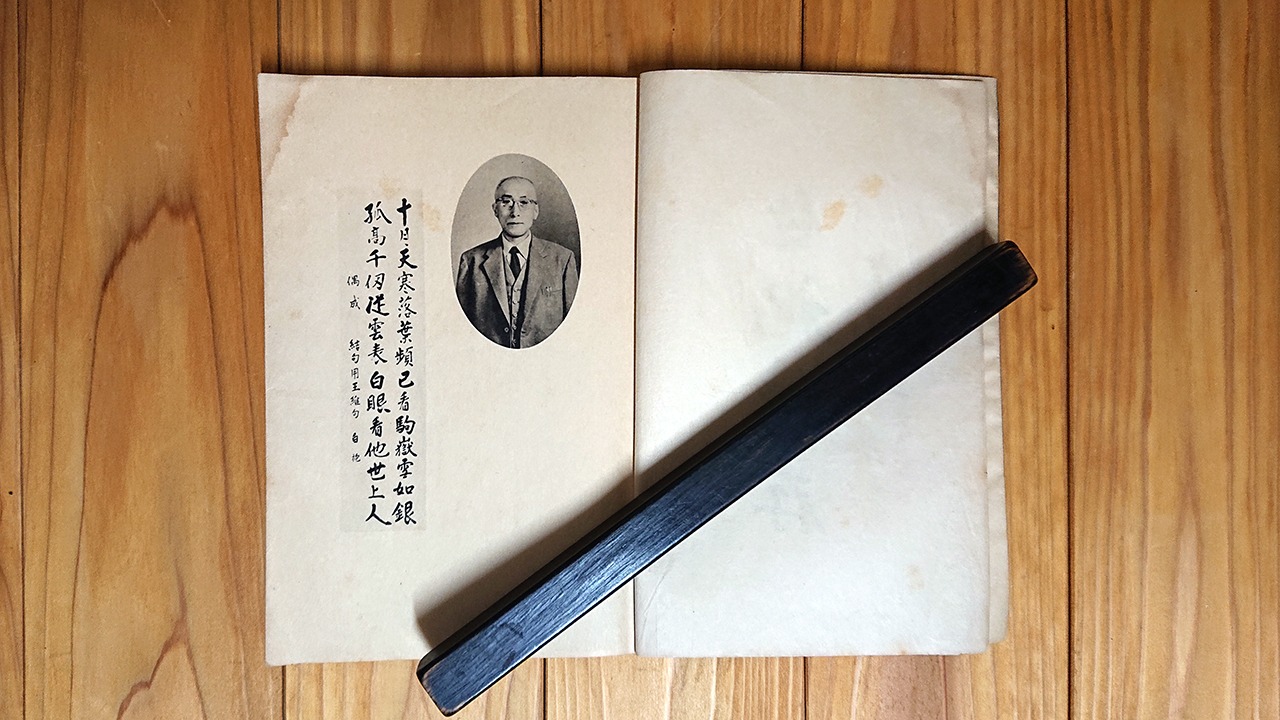 十月天寒落葉頻已看駒嶽雪如銀
孤高千仞従雲表白眼看他世上人
偶成 結句用王維句 自